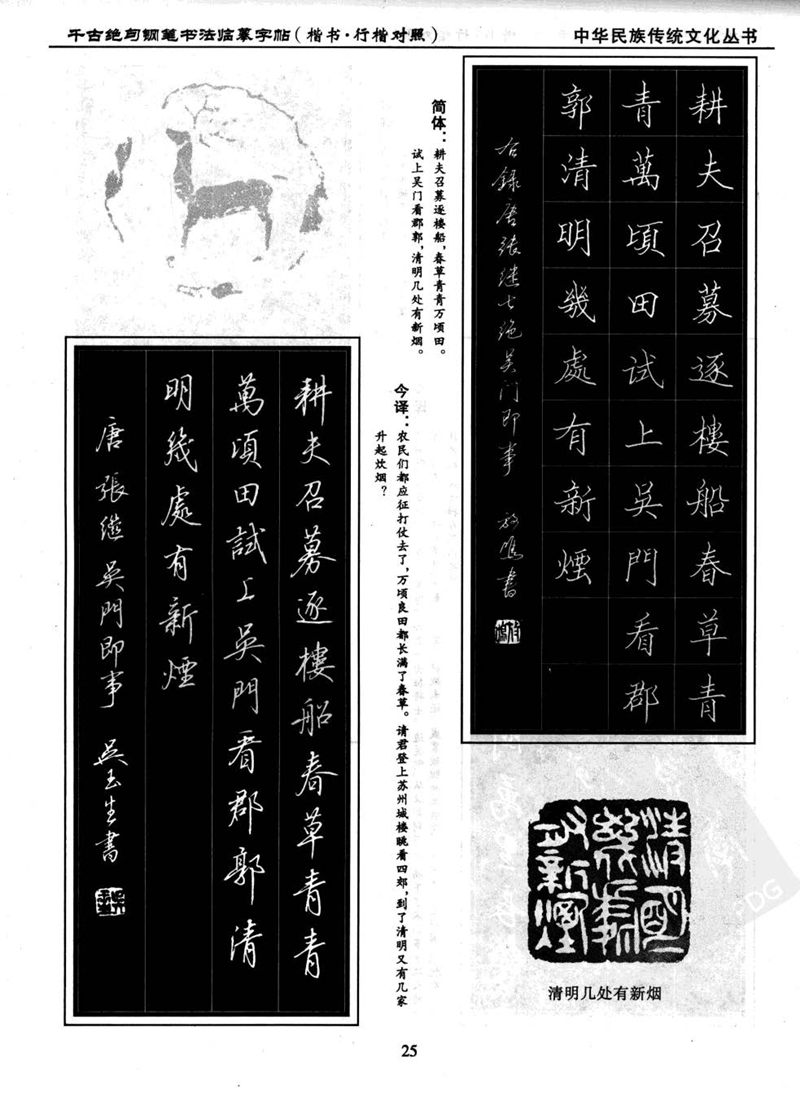 千古绝句钢笔书法临摹字帖(楷书·行楷对照)
中华民族传统文化丛书
耕夫召募逐樓船春草青
青萬頃田試上吳門看郡
郭清明幾處有新煙
右錄唐張继七绝吴门即事
書
简体：耕夫召募逐楼船，春草青青万顷田。
试上吴门看郡郭，清明几处有新烟。
今译：农民们都应征打仗去了，万顷良田都长满了春草。请君登上苏州城楼眺看四郊，到了清明又有几家
升起炊烟？
耕夫召募逐樓船春草青青
萬頃田試上吳門看郡郭清
明幾處有新煙
唐張繼吳門即事 吳玉生書
清明
幾處
有新煙
清明几处有新烟
25
DG